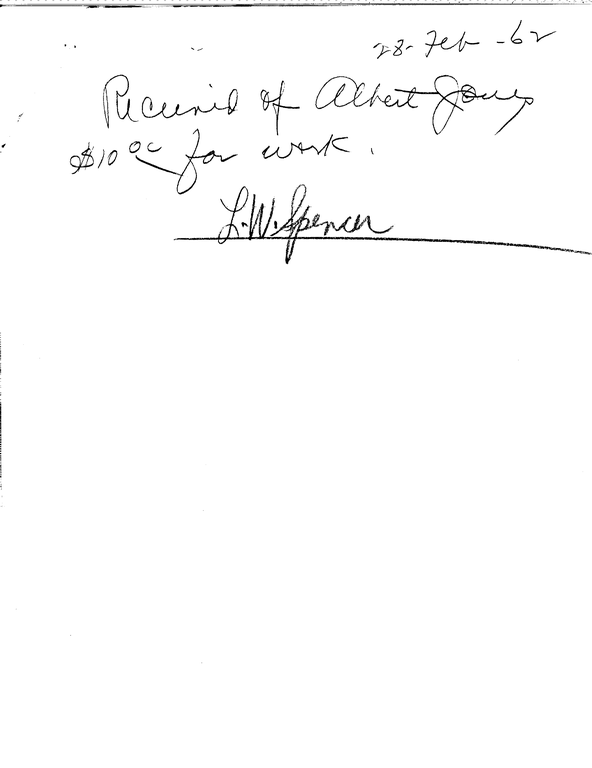 28- Feb -62
Received of Albert Jones
$10 00 for work.
L.W. Spencer